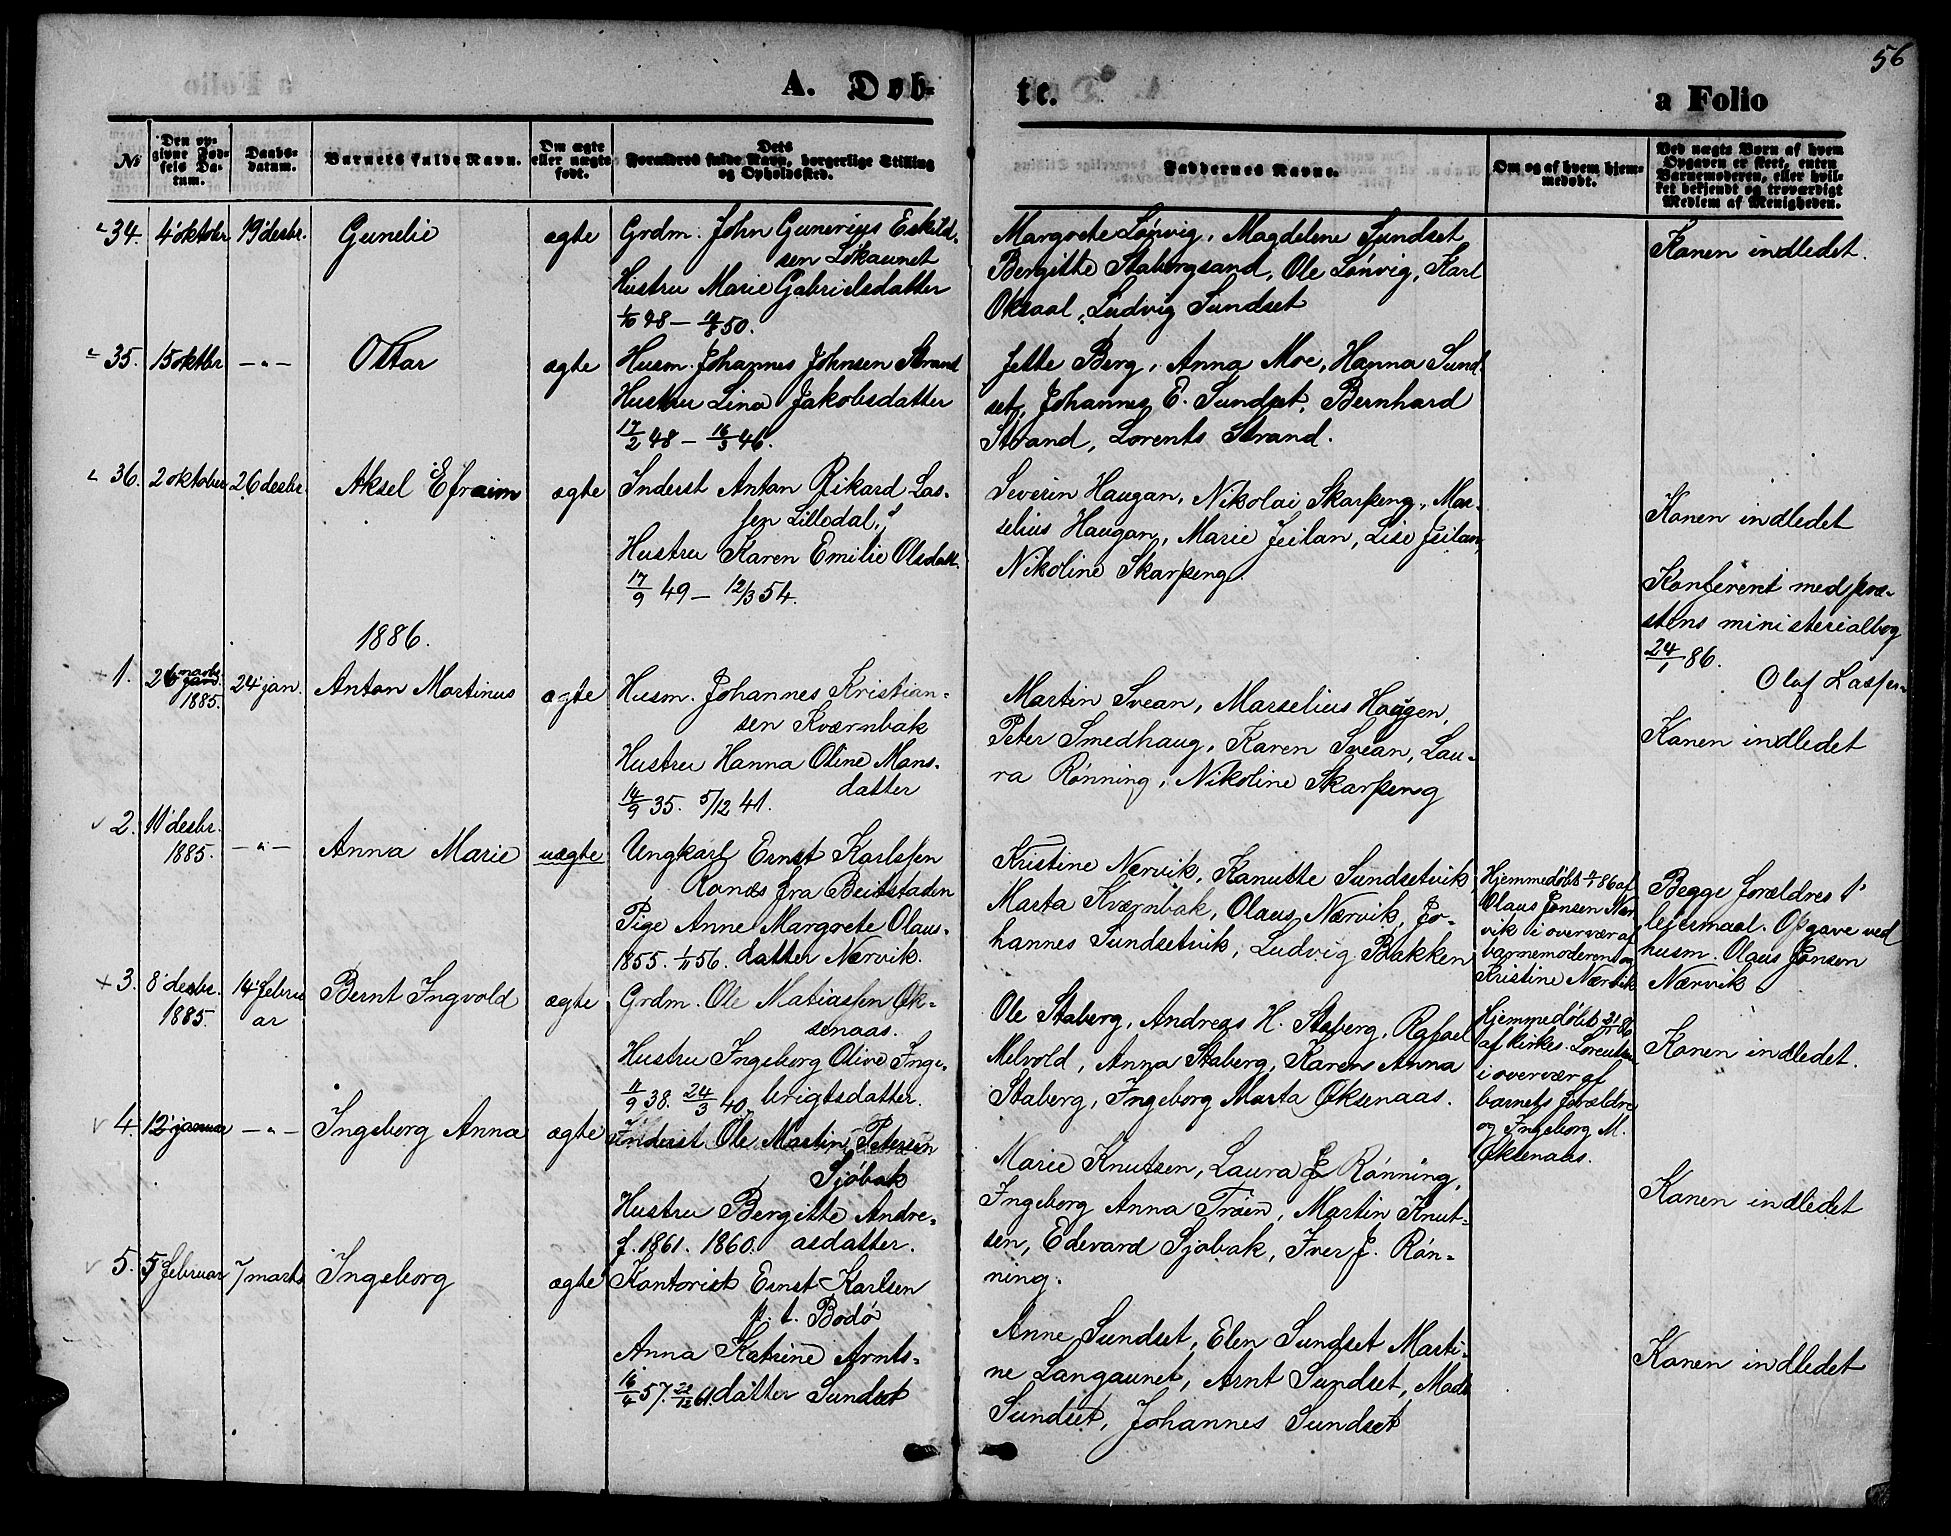 56
A. Døb-
te.
a Folio
No
Den op-
givne Fød-
sels Da-
tum.
Daabs-
datum.
Barnets fulde Navn.
Om ægte
eller uægte
født.
Dets
Forældres fulde Navn, borgerlige Stilling
og Opholdssted.
Faddernes Navne.
Om og af hvem hjem-
medøbt.
Ved uægte Børn af hvem
Opgaven er skeet, enten
Barnemoderen, eller hvil-
ket bekjendt og troværdigt
Medlem af Menigheden.
34. 4 oktobr 19 desbr. Gunelie ægte Grdm. John Gunerius Eskild-
sen Løkaunet
Hustru Marie Gabrielsdatter
1/10 48 — 19/8 50.
Margrete Lønvig, Magdelene Sundset
Bergitte Stabergsand, Ole Lønvig, Karl
Oksaal, Ludvig Sundset
Konen indledet.
35. 15 oktbr — " — Ottar ægte Husm. Johannes Johnsen Strand
Hustru Lina Jakobsdatter
17/2 48 — 16/3 46.
Jette Berg, Anna Moe, Hanna Sund-
set, Johannes E. Sundset, Bernhard
Strand, Lorents Strand.
36. 2 oktober 26 desbr. Aksel Efraim ægte Inderst Anton Rikard Las-
sen Lilledal,
Hustru Karen Emilie Olsdatt.
17/9 49 — 12/3 54.
Severin Haugan, Nikolai Skarpeng, Mar-
selius Haugan, Marie Jeilan, Lise Jeilan,
Nikoline Skarpeng.
Konen indledet
Konfereret med præ-
stens ministerialbog
24/1 86.
Olaf Lassen
1886.
1. 26 marts
1885. 24 jan. Anton Martinus ægte Husm. Johannes Kristian-
sen Kværnbak
Hustru Hanna Oline Mons-
datter
14/9 35. 5/12 41.
Martin Svean, Marselius Haugen,
Peter Smedhaug, Karen Svean, Lau-
ra Rønning, Nikoline Skarpeng
Konen indledet
2. 11 desbr.
1885. — " — Anna Marie uægte Ungkarl Ernst Karlssen
Ranæs fra Beitstaden
Pige Anne Margrete Olaus-
1855. 1/11 56. datter Nærvik.
Kristine Nærvik, Kanutte Sundsetvik,
Marta Kværnbak, Olaus Nærvik, Jo-
hannes Sundsetvik, Ludvig Bakken
Hjemmedøbt 86 af
Olaus Jonsen Nær-
vik i overvær af
barnemoderen og
Kristine Nærvik
Begge forældres 1'
leiermaal. Opgave ved
husm. Olaus Jonsen
Nærvik
3. 8 desbr.
1885. 14 febru-
ar Bernt Ingvold ægte Grdm. Ole Matiassen Øk-
senaas.
Hustru Ingeborg Olive Inge-
brigtsdatter.
11/9 38. 24/3 40.
Ole Staberg, Andreas H. Staberg, Rafael
Melvold, Anna Staberg, Karen Anna
Staberg, Ingeborg Marta Øksenaas.
Hjemmedøbt 31/1 86
af kirkes. Lorentsen
i overvær af
barnets forældre
og Ingeborg M.
Øksenaas.
Konen indledet.
4. 12 januar — " — Ingeborg Anna ægte Inderst Ole Martin Petersen
Sjøbak
Hustru Bergitte Andre-
f. 1861. 1860. asdatter.
Marie Knutsen, Laura J Rønning,
Ingeborg Anna Trøen, Martin Knut-
sen, Edevard Sjøbak, Iver J. Røn-
ning.
Konen indledet
5. 5 februar 7 marts Ingeborg ægte Kontorist Ernst Karlsen
p. t. Bodø
Anna Katrine Arnts-
16/4 57. 22/12 61. datter Sundset
Anne Sundset, Elen Sundset Marti-
ne Langaunet, Arnt Sundset, Mads
Sundset, Johannes Sundset
Konen indledet